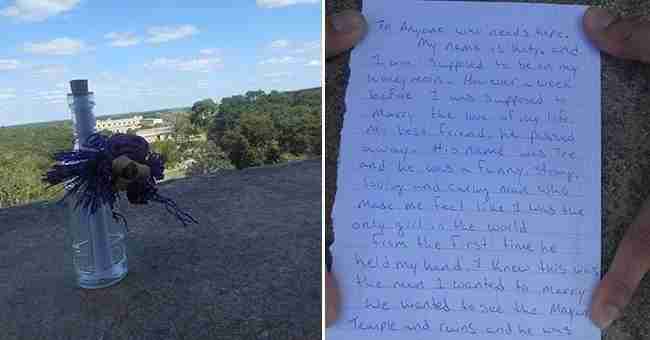 To Anyone who needs hope.
My name is Katy, and
I am supposed to be on my
honeymoon. However a week
before I was supposed to
marry the love of my life,
my best friend, he passed
away. His name was Tre
and he was a funny, strong,
loving and caring man who
made me feel like I was the
only girl in the world
From the first time he
held my hand, I knew this was
the man I wanted to marry
We wanted to see the Mayan
Temple and ruins and he was